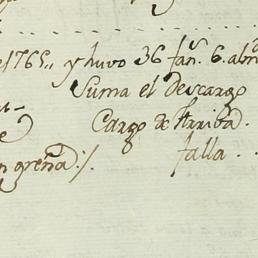 e 1765,, y huvo 36 fan.s 6. alm
Suma el Descargo
Cargo de Arriba.
e
n greña ./. falla . .